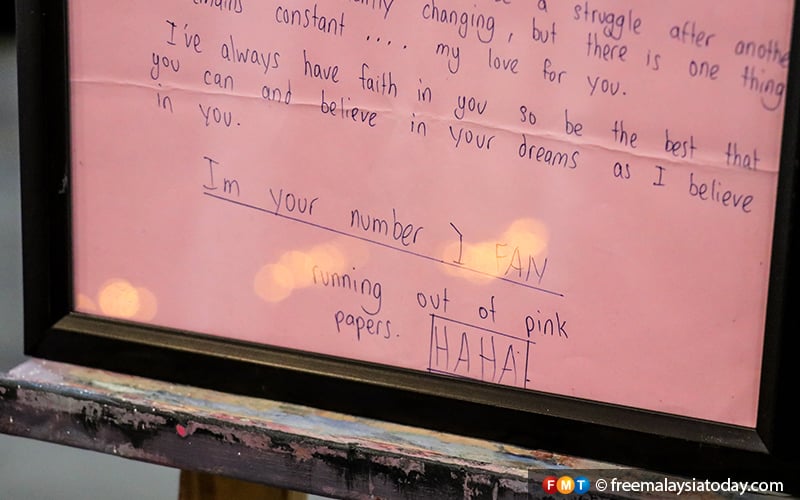 a struggle after
constant .... changing, but there is one thing
my love for you.
I've always have faith in you so be the best that
you can and believe in your dreams as I believe
in you.
Im your number 1 FAN
running out of pink
papers. HAHA
FMT © freemalaysiatoday.com